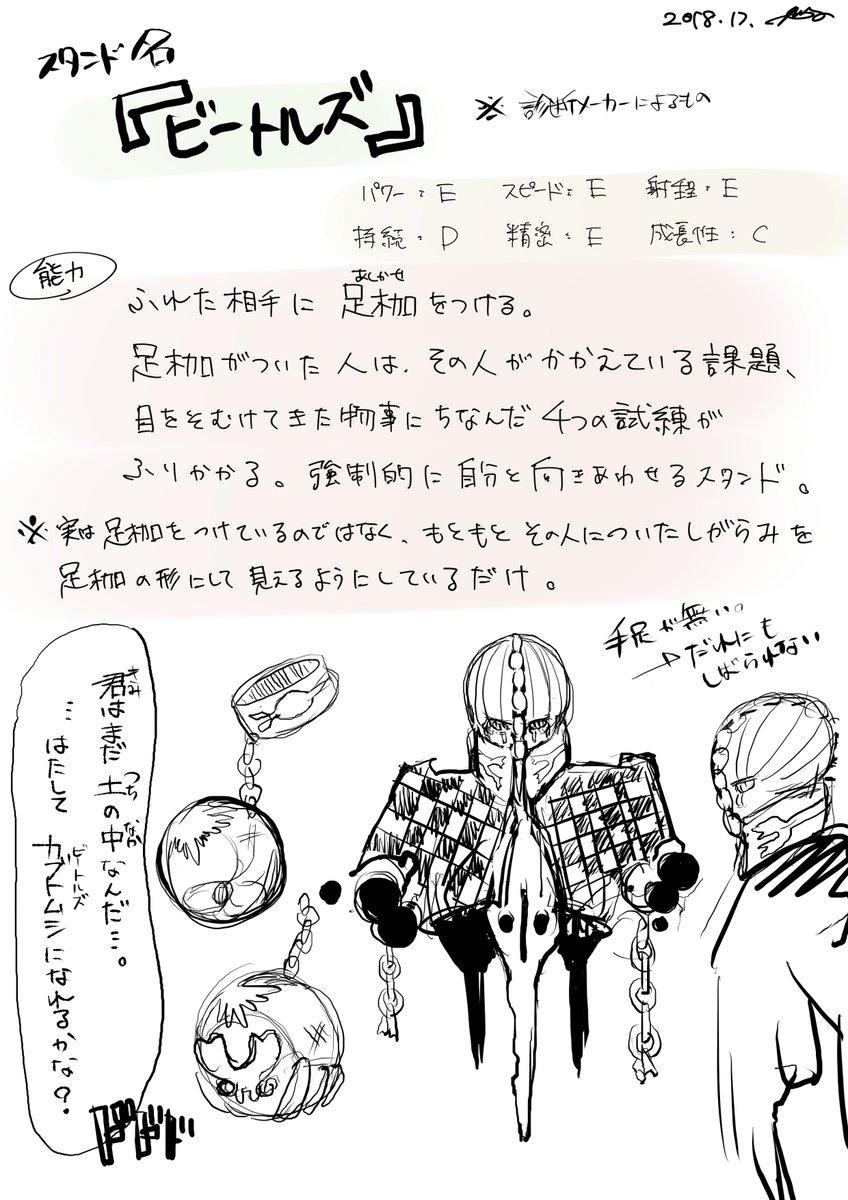 2018.12.
スタンド名
『ビートルズ』
※ 診断メーカーによるもの
パワー：E スピード：E 射程：E
持続：D 精密：E 成長性：C
能力
ふれた相手に 足枷をつける。
あしかせ
足枷がついた人は、その人がかかえている課題、
目をそむけてきた物事にちなんだ 4つの試練が
ふりかかる。強制的に自分と向きあわせるスタンド。
※ 実は足枷をつけているのではなく、もともとその人についたしがらみを
足枷の形にして見えるようにしているだけ。
手足が無い。
→だれにも
しばられない
君はまだ土の中なんだ…。
きみ つち なか
…はたして カブトムシになれるかな？
ビートルズ
ドドド